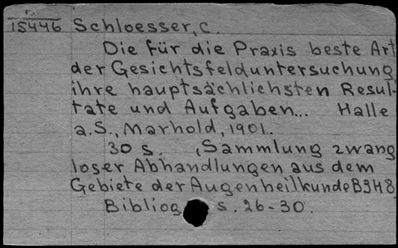 15446 Schloesser, C.
Die für die Praxis beste Art
der Gesichtsfelduntersuchung,
ihre hauptsächlichsten Resul-
tate und Aufgaben... Halle
a.S., Marhold, 1901.
30 s. (Sammlung zwang
loser Abhandlungen aus dem
Gebiete der Augenheilkunde B3H8
Bibliog s. 26-30.